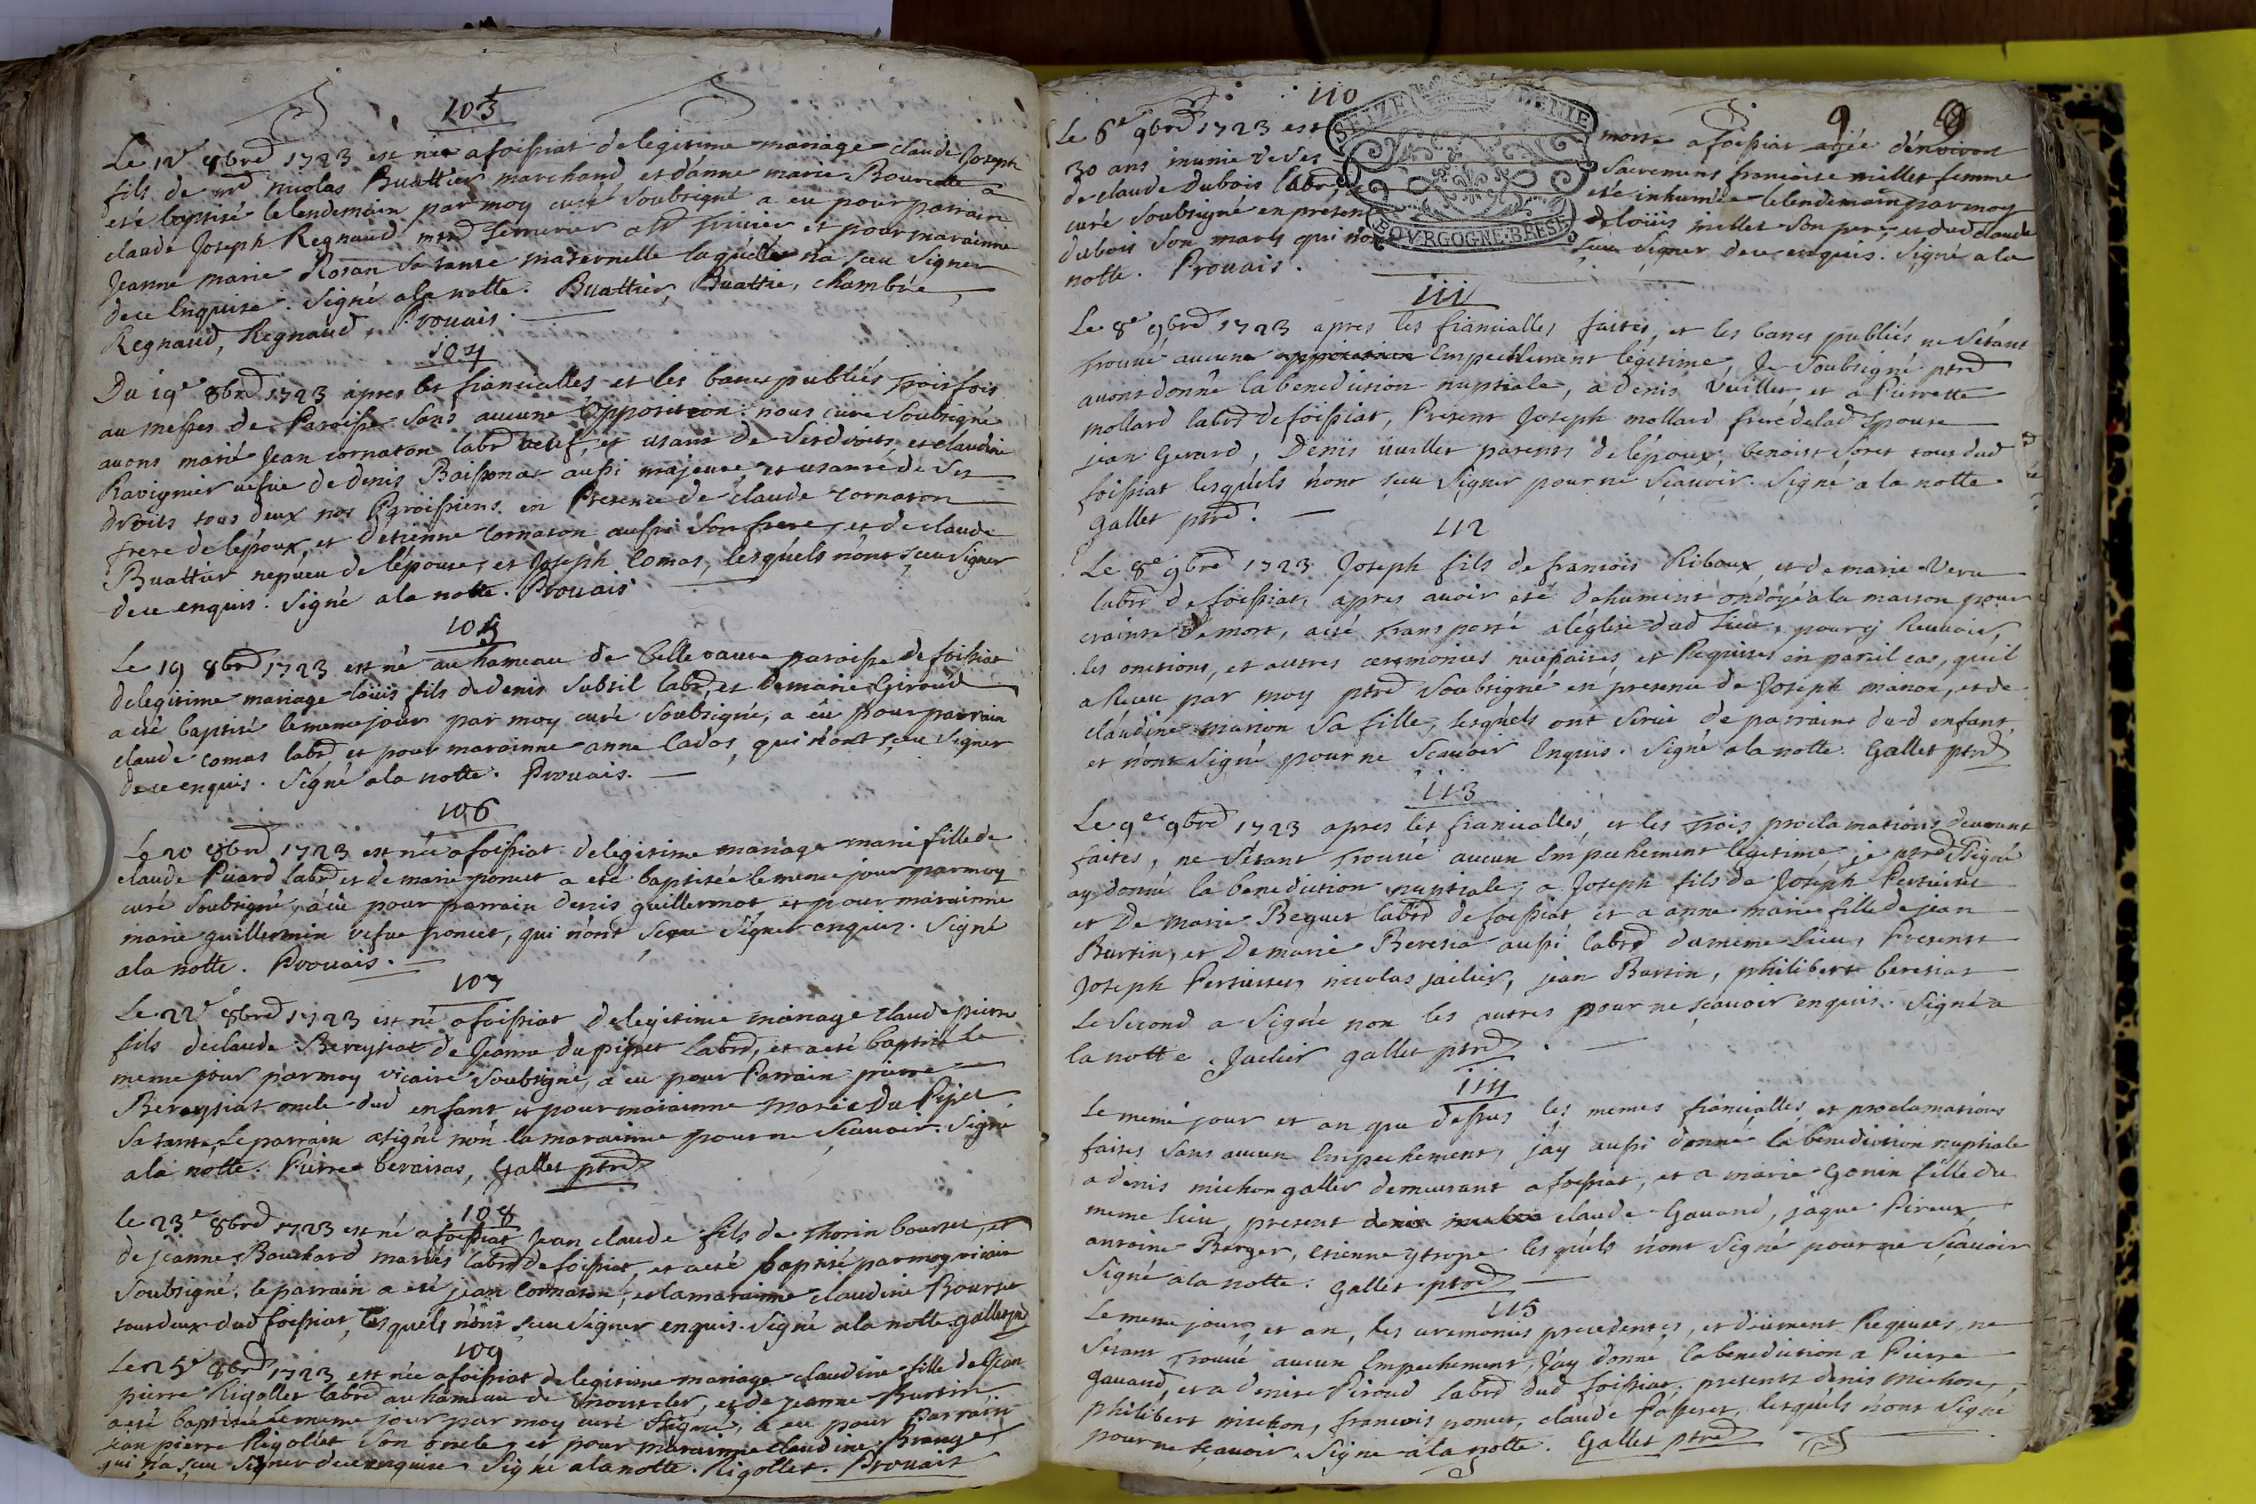 103
Le 12e 8bre 1723 est née a foissiat de legitime mariage claude Joseph
fils de mr nicolas Buattier marchand et d'anne marie Bourcelle a
eté baptisé le lendemain par moy curé soubsigné a eu pour parrain
claude Joseph Regnaud mre et pour marainne
Jeanne marie Rosan sa tante maternelle laquelle n'a sceu signer
de ce Enquise. Signé a la notte. Buattier, Buattie, chambré,
Regnaud, Regnaud, Prouais.
104
Du 19e 8bre 1723 apres les fiancialles et les bancs publiés trois fois
au messes de Paroisse sans aucune Opposition. nous curé soubsigné
auons marié Jean cornaton labr veuf, et usant de ses droits, et claudine
Ravignier vefue de denis Boissona aussi majeure et usante de ses
droits tous deux nos Paroissiens. en Presence de claude cornaton
frere de l'époux, et d'etienne cornaton aussi son frere, et de claude
Buattier nepueu de l'épouse, et Joseph Comas, lesquels n'ont sceu signer
de ce enquis. Signé a la notte. Prouais
105
Le 19 8bre 1723 est né au hameau de Cellevaure paroisse de foissiat
de legitime mariage loüis fils de denis subtil labr, et de marie Giroud
a eté baptisé le meme jour par moy curé soubsigné, a eû pour parrain
claude comas labr et pour marainne anne Cados, qui n'ont sceu signer
de ce enquis. Signé a la notte. Prouais.
106
Le 20 8bre 1723 est née a foissiat de legitime mariage marie fille de
claude Puard labr et de marie poncet a eté baptisée le meme jour par moy
curé soubsigné, a eû pour parrain denis guillermot et pour marainne
marie guillermin vefue poncet, qui n'ont sceu signer enquis. Signé
a la notte. Prouais.
107
Le 22e 8bre 1723 est né a foissiat de legitime mariage claude pierre
fils de claude Bereysiat de Jeanne du pipet labr, et a eté baptisé le
meme jour par moy vicaire soubsigné, a eu pour Parrain pierre
Bereysiat oncle dud enfant et pour marainne marie Du Pipet
sa tante, Le parrain a signé non la marainne pour ne sçauoir. Signé
a la notte. Pierre beraisas, Gallet ptre
108
Le 23e 8bre 1723 est né a foissiat Jean claude fils de Thorin bourcet, et
de jeanne Bouchard mariés labr de foissiat, et a eté baptisé par moy vicaire
soubsigné, le parrain a eté jean Cornaton, et la marainne claudine Bourcet
tous deux dud foissiat, lesquels n'ont sceu signer enquis. Signé a la notte. gallet ptre
109
Le 25e 8bre 1723 est née a foissiat de legitime mariage claudine fille de Jean
pierre Rigollet labr au hameau de , et de jeanne Burtin
a eté baptisée le meme jour par moy curé ssigné, a eu pour Parrain
jean pierre Rigollet son oncle, et pour marainne claudine
qui n'a sceu signer de ce enquise. Signé a la notte. Rigollet. Prouais
110
9 9
SEIZE DENIE
BOVRGOGNE·BRESSE
Le 6e 9bre 1723 est morte a foissiat agée d'énviron
30 ans munie de ses Sacremens francoise millet femme
de claude Dubois labr, eté inhumée le lendemain par moy
curé soubsigné en presence de loüis millet son pere, et dud claude
dubois son mary qui n'ont sceu signer de ce enquis. Signé a la
notte. Prouais.
111
Le 8e 9bre 1723 apres les fiancialles faites, et les bancs publiés ne s'étant
trouué aucune Empechement legitime, Je soubsigné ptre
auons donné la benediction nuptiale, a denis Vuillet, et a Pierrette
mollard labr de foissiat, Present Joseph mollard frere de lad Epouse
jean Gerard, Denis vuillet parents de l'époux, benoist soret tous dud
foissiat lesquels n'ont sceu signer pour ne sçauoir. Signé a la notte
Gallet ptre.
112
Le 8e 9bre 1723 Joseph fils de francois Riboux et de marie Veru
labr de foissiat, apres auoir eté dehument ondoyé a la maison pour
crainte de mort, a eté transporté a l'églize dud Lieu, pour y Receuoir,
les onctions, et autres ceremonies necessaires et Requises en pareil cas, qu'il
a Receu par moy ptre soubsigné en presence de Joseph manon, et de
claudine marion sa fille, lesquels ont seruie de parrains dud enfant,
et n'ont signé pour ne sçauoir Enquis. Signé a la notte. Gallet ptre
113
Le 9e 9bre 1723 apres les fiancialles, et les trois proclamations deuement
faites, ne s'étant trouué aucun Empechement legitime, je ptre ssigné
ay donné la benediction nuptiale, a Joseph fils de Joseph Pertuiset
et De marie Beguet labr de foissiat et a anne marie fille de jean
Burtin, et De marie Beresia aussi labr du meme Lieu, Presents
Joseph Pertuiset, nicolas jaclier, jean Burtin, philibert beresiat
Le second a signé non les autres pour ne sçauoir enquis. Signé a
la notte. Jaclier gallet ptre.
114
Le meme jour et an que dessus les memes fiancialles, et proclamations
faites sans aucun Empechement, j'ay aussi donné la benediction nuptiale
a denis michon gallet demeurant a foissiat, et a marie Gonin fille du
meme Lieu, present claude Gauand, jâque Pireux,
antoine Berger, etienne ytrope lesquels n'ont signé pour ne sçauoir
Signé a la notte. Gallet ptre
115
Le meme jour, et an, les ceremonies precedentes, et düement Requises, ne
s'étant trouué aucun Empechement, J'ay donné la benediction a Pierre
gauand, et a denise Piroud labr dud foissiat, presents denis michon,
philibert michon, francois poncet, claude Passeret, lesquels n'ont signé
pour ne sçauoir. Signé a la notte. Gallet ptre